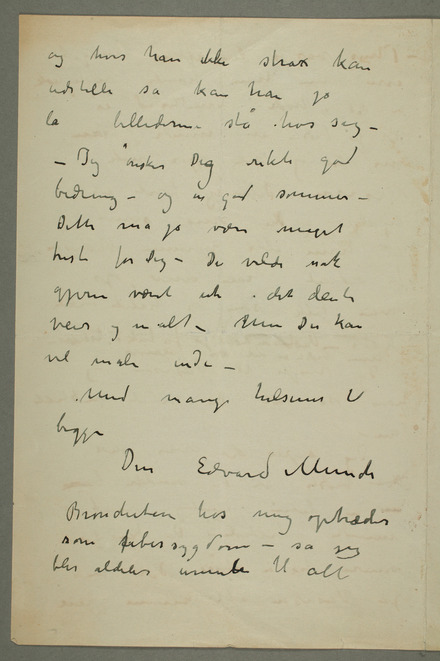 og hvis han ikke strax kan
udstille så kan han jo
la billederne stå hos sig –
– Jeg ønsker Dig rikti god
bedring – og en god sommer –
Dette må jo være meget
trist for Dig – Du vilde nok
gjerne været ute i det deilige
veir og malt – Men Du kan
vel male inde –
Med mange hilsener til
begge
Din Edvard Munch
Bronchiten hos mig optræder
som febersygdom – så jeg
blir aldeles umulig til alt